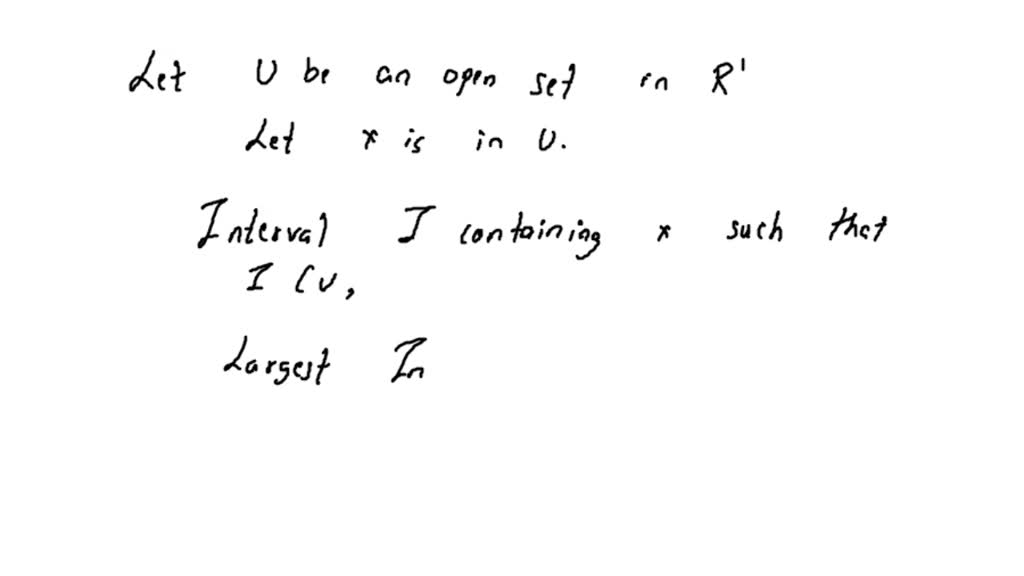 Let U be an open set in R'
Let x is in U.
Interval I containing x such that
I ⊂ U,
Largest In